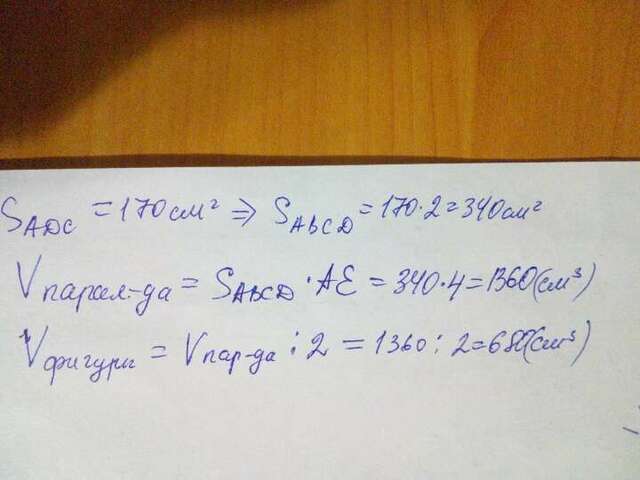 S_ADC = 170 см² ⇒ S_ABCD = 170·2 = 340 см²
V_парал-да = S_ABCD · AE = 340·4 = 1360 (см³)
V_фигуры = V_пар-да : 2 = 1360 : 2 = 680 (см³)